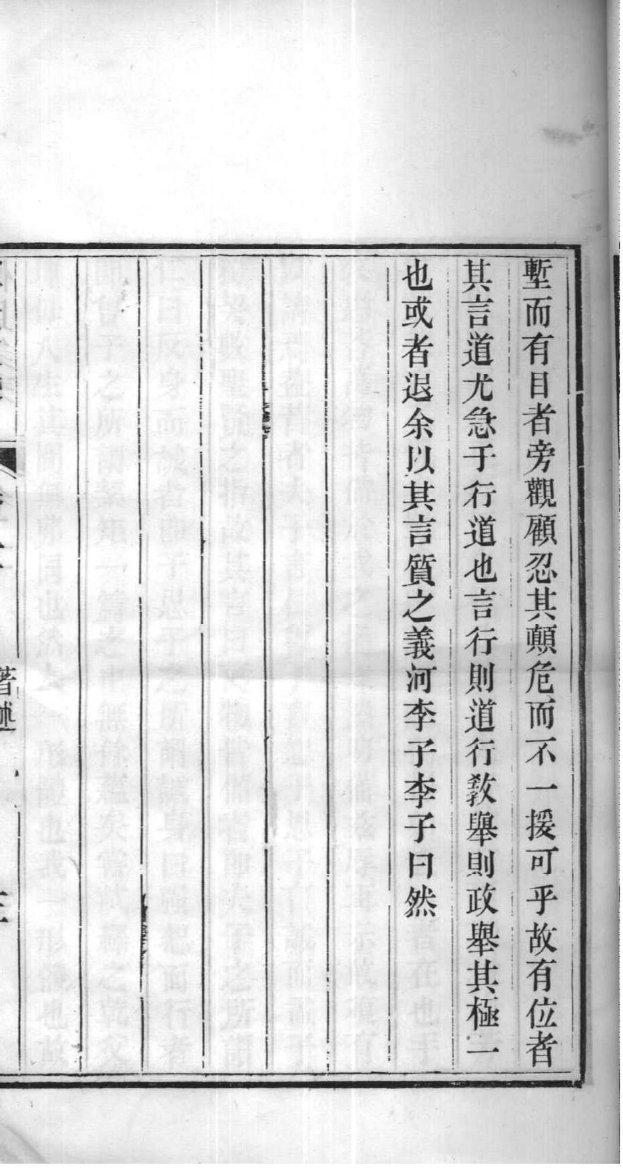 塹而有目者旁觀顧忍其顛危而不一援可乎故有位者
其言道尤急于行道也言行則道行敎舉則政舉其極一
也或者退余以其言質之義河李子李子曰然
著述